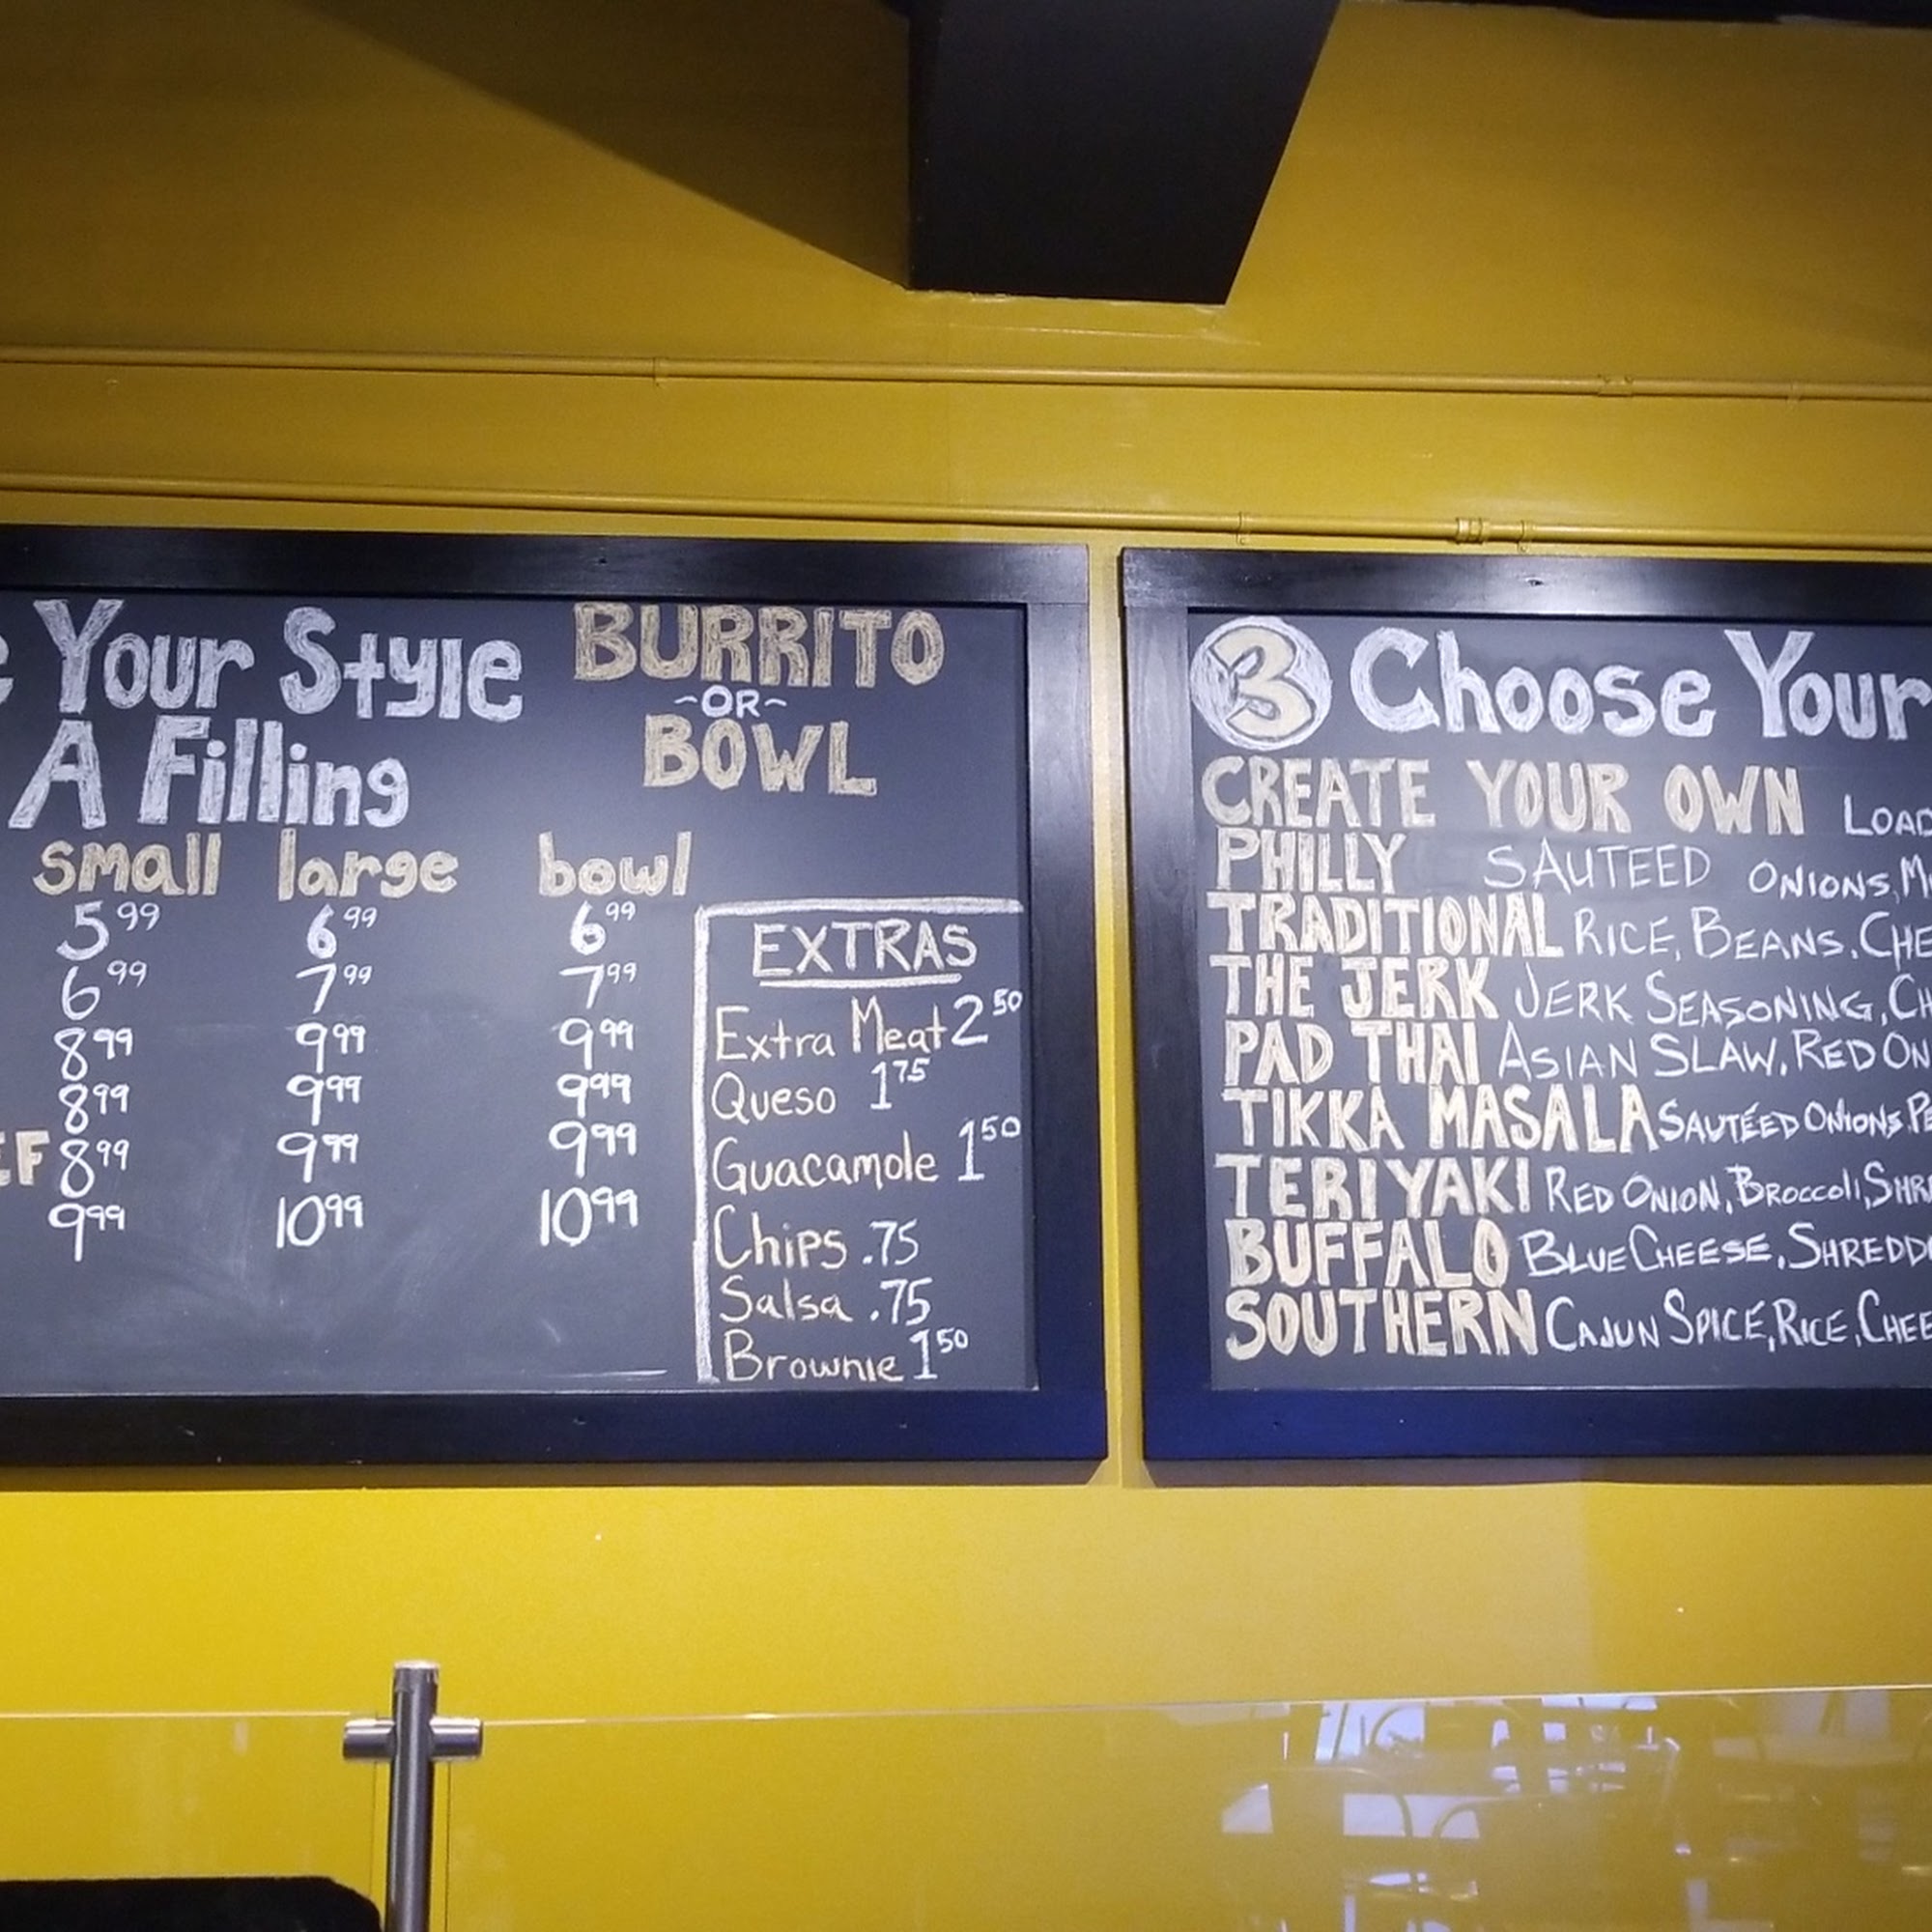 Your Style
A Filling
BURRITO
~OR~
BOWL
small large bowl
5.99 6.99 6.99
6.99 7.99 7.99
8.99 9.99 9.99
8.99 9.99 9.99
EF 8.99 9.99 9.99
9.99 10.99 10.99
EXTRAS
Extra Meat 2.50
Queso 1.75
Guacamole 1.50
Chips .75
Salsa .75
Brownie 1.50
3 Choose Your
CREATE YOUR OWN LOAD
PHILLY SAUTEED ONIONS, M
TRADITIONAL RICE, BEANS, CHE
THE JERK JERK SEASONING, CH
PAD THAI ASIAN SLAW, RED ON
TIKKA MASALA SAUTÉED ONIONS, PE
TERIYAKI RED ONION, BROCCOLI, SHR
BUFFALO BLUE CHEESE, SHREDD
SOUTHERN CAJUN SPICE, RICE, CHEE